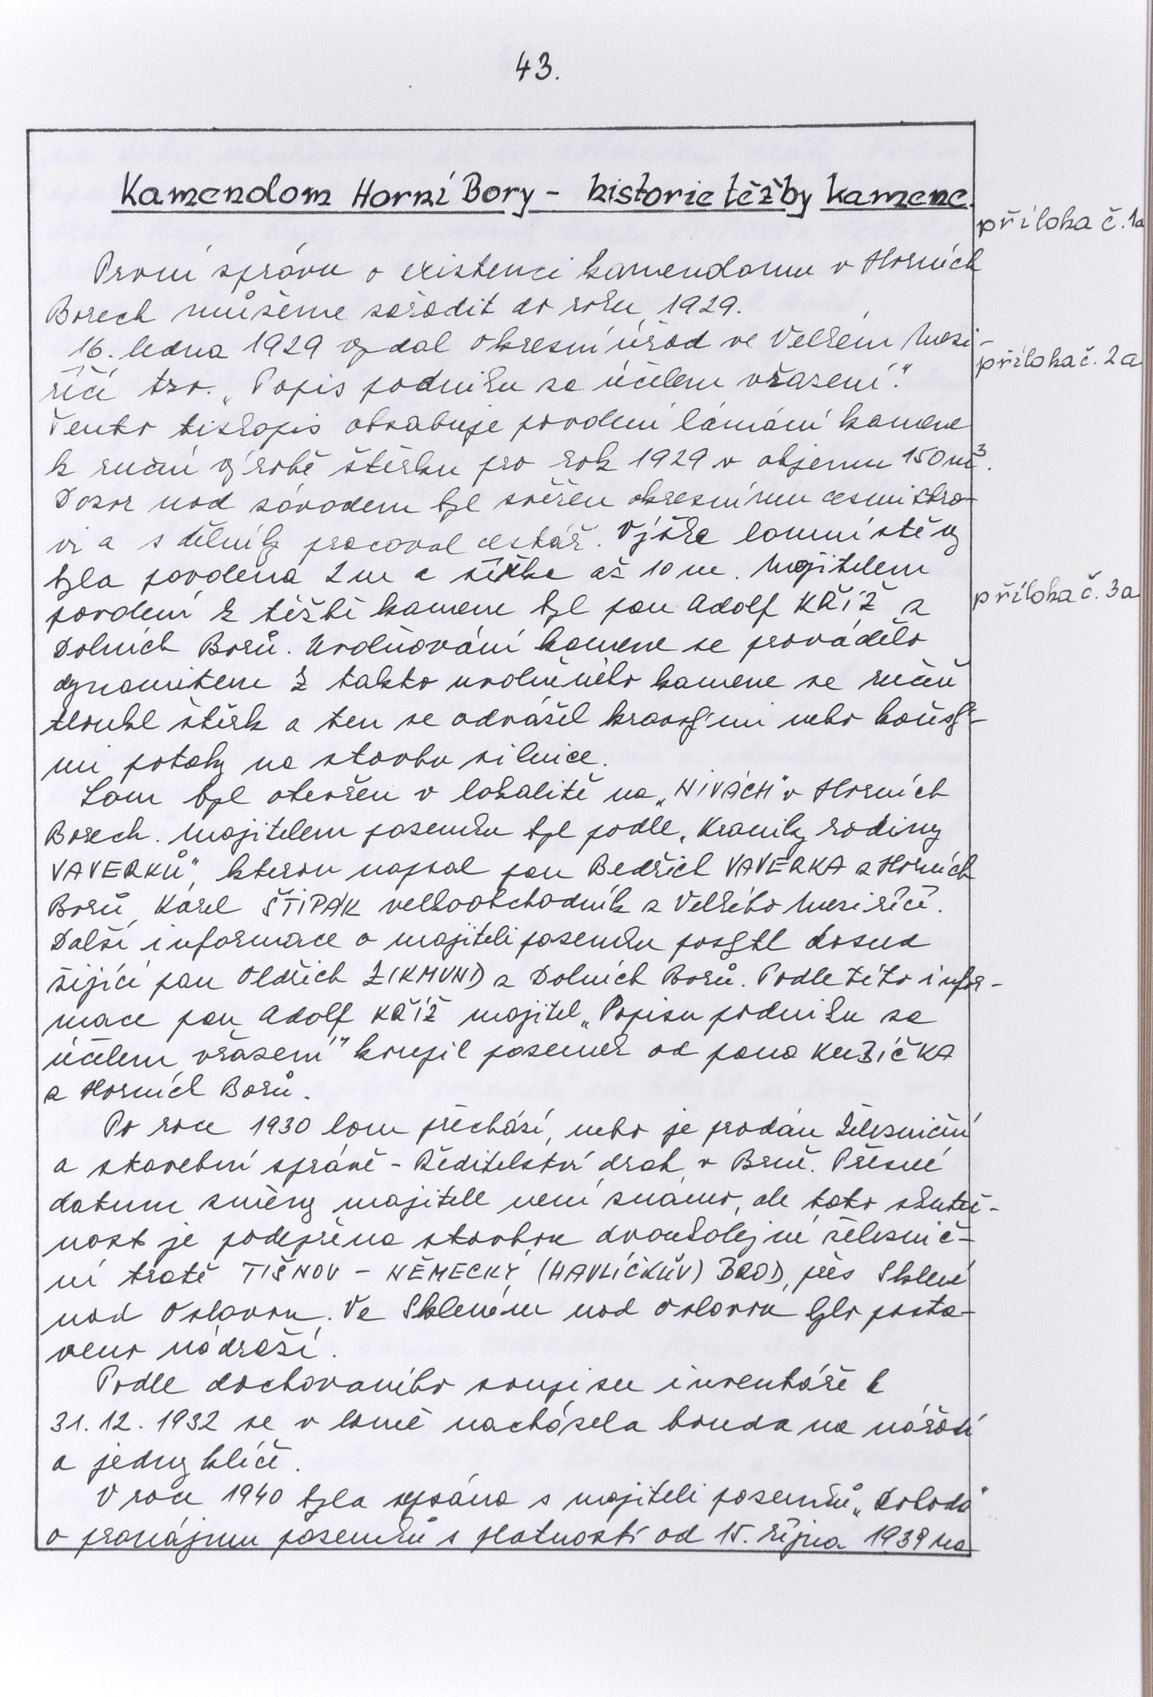 43.
Kamenolom Horní Bory - historie těžby kamene.
příloha č. 1a
První zprávu o existenci kamenolomu v Horních
Borech můžeme zařadit do roku 1929.
16. ledna 1929 vydal Okresní úřad ve Velkém Mezi-
příloha č. 2a
říčí tzv. „Popis podniku za účelem vřazení."
Tento tiskopis obsahuje povolení lámání kamene
k ruční výrobě štěrku pro rok 1929 v objemu 150 m³.
Dozor nad závodem byl svěřen okresnímu cesmistro-
vi a s dělníky pracoval cestář. Výška lomní stěny
byla povolena 2 m a šířka až 10 m. Majitelem
příloha č. 3a
povolení k těžbě kamene byl pan Adolf KŘÍŽ z
Dolních Borů. Uvolňování kamene se provádělo
dynamitem. Z takto uvolněného kamene se ručně
tloukl štěrk a ten se odvážel kravskými nebo koňský-
mi potahy na stavbu silnice.
Lom byl otevřen v lokalitě na „NIVÁCH" v Horních
Borech. Majitelem pozemku byl podle „Kroniky rodiny
VAVERKŮ", kterou napsal pan Bedřich VAVERKA z Horních
Borů, Karel ŠTIPÁK velkoobchodník z Velkého Meziříčí.
Další informace o majiteli pozemku poskytl dosud
žijící pan Oldřich ZIKMUND z Dolních Borů. Podle této infor-
mace pan Adolf KŘÍŽ majitel „Popisu podniku za
účelem vřazení" koupil pozemek od pana KUBÍČKA
z Horních Borů.
Po roce 1930 lom přechází, nebo je prodán Železniční
a stavební správě - Ředitelství drah v Brně. Přesné
datum směny majitele není známo, ale tato skuteč-
nost je podepřena stavbou dvoukolejné železnič-
ní tratě TIŠNOV - NĚMECKÝ (HAVLÍČKŮV) BROD, přes Sklené
nad Oslavou. Ve Skleném nad Oslavou bylo posta-
veno nádraží.
Podle dochovaného soupisu inventáře k
31. 12. 1932 se v lomě nacházela bouda na nářadí
a jedny klíče.
V roce 1940 byla sepsána s majiteli pozemků „Dohoda"
o pronájmu pozemků s platností od 15. října 1939 na